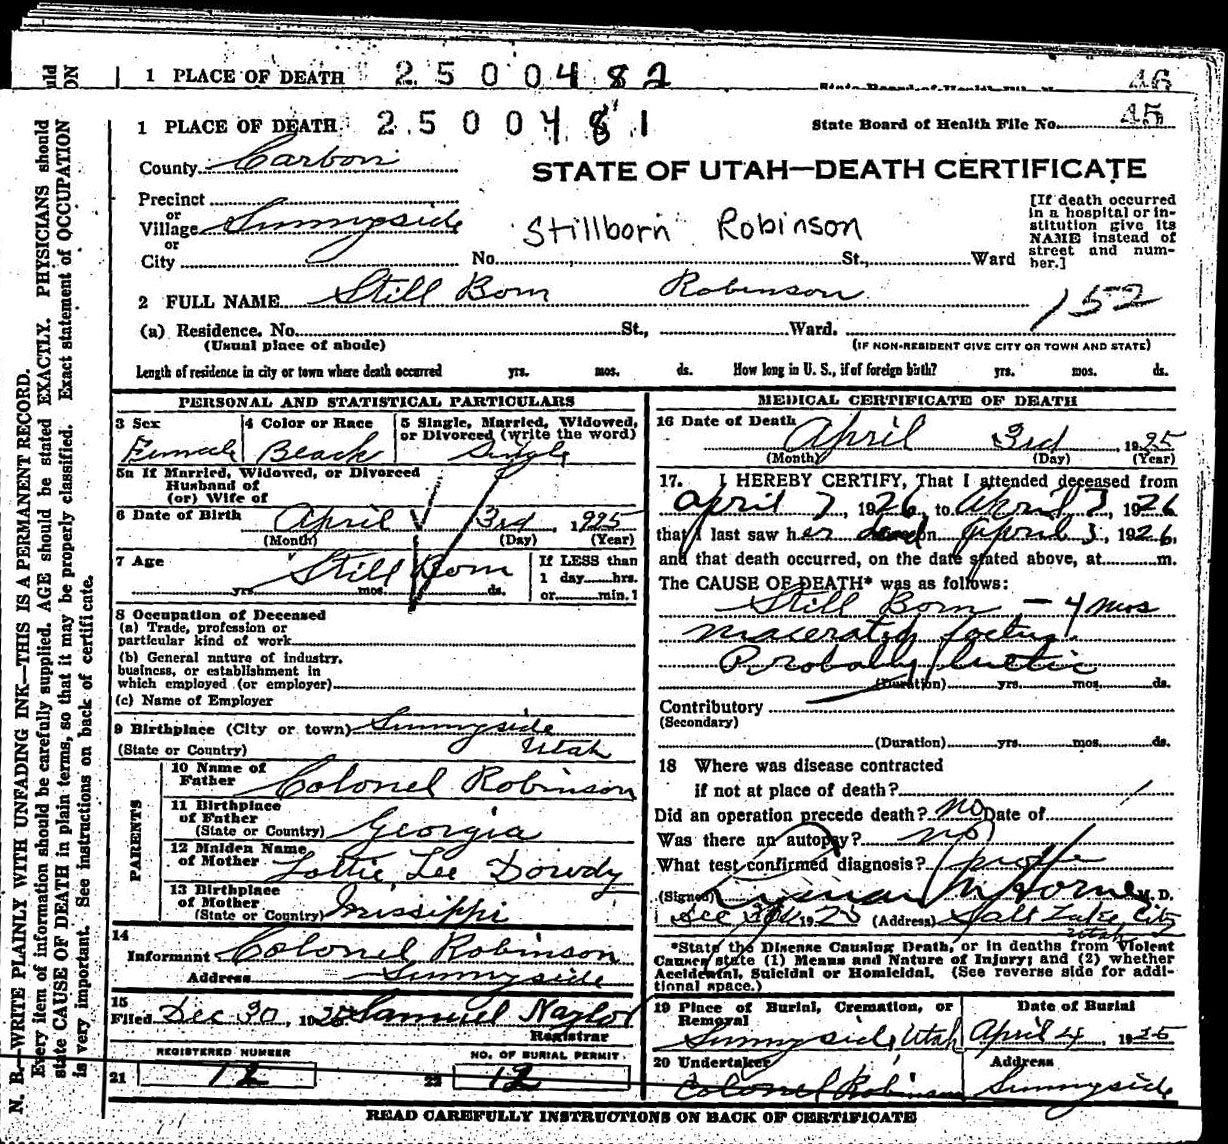 1 PLACE OF DEATH 2500482 46
1 PLACE OF DEATH 2500481
State Board of Health File No. 45
County Carbon
STATE OF UTAH—DEATH CERTIFICATE
Precinct
or
Village Sunnyside
or
City No. St., Ward
Stillborn Robinson
[If death occurred
in a hospital or in-
stitution give its
NAME instead of
street and num-
ber.]
2 FULL NAME Still Born Robinson
152
(a) Residence. No. St., Ward.
(Usual place of abode) (IF NON-RESIDENT GIVE CITY OR TOWN AND STATE)
Length of residence in city or town where death occurred yrs. mos. ds. How long in U. S., if of foreign birth? yrs. mos. ds.
PERSONAL AND STATISTICAL PARTICULARS
3 Sex Female
4 Color or Race Black
5 Single, Married, Widowed,
or Divorced (write the word)
Single
5a If Married, Widowed, or Divorced
Husband of
(or) Wife of
6 Date of Birth April 3rd, 1925
(Month) (Day) (Year)
7 Age Still Born
yrs. mos. ds.
If LESS than
1 day hrs.
or min.
8 Occupation of Deceased
(a) Trade, profession or
particular kind of work
(b) General nature of industry,
business, or establishment in
which employed (or employer)
(c) Name of Employer
9 Birthplace (City or town) Sunnyside
(State or Country) Utah
PARENTS
10 Name of
Father Colonel Robinson
11 Birthplace
of Father
(State or Country) Georgia
12 Maiden Name
of Mother Lottie Lee Dowdy
13 Birthplace
of Mother
(State or Country) Missippi
14
Informant Colonel Robinson
Address Sunnyside
15
Filed Dec 30, 1925 Samuel Naylor
Registrar
REGISTERED NUMBER
21 12
NO. OF BURIAL PERMIT
22 12
MEDICAL CERTIFICATE OF DEATH
16 Date of Death April 3rd 1925
(Month) (Day) (Year)
17. I HEREBY CERTIFY, That I attended deceased from
April 3, 1926, to April 3, 1926
that I last saw her on April 3, 1926,
and that death occurred, on the date stated above, at m.
The CAUSE OF DEATH* was as follows:
Still Born - 4 mos
macerated foetus.
Probably luetic
(Duration) yrs. mos. ds.
Contributory
(Secondary)
(Duration) yrs. mos. ds.
18 Where was disease contracted
if not at place of death?
Did an operation precede death? no Date of
Was there an autopsy? no
What test confirmed diagnosis?
(Signed) M. D.
Dec 1925 (Address) Salt Lake City
Utah
*State the Disease Causing Death, or in deaths from Violent
Causes, state (1) Means and Nature of Injury; and (2) whether
Accidental, Suicidal or Homicidal. (See reverse side for addi-
tional space.)
19 Place of Burial, Cremation, or
Removal
Sunnyside, Utah
Date of Burial
April 4, 1925
20 Undertaker
Colonel Robinson
Address
Sunnyside
READ CAREFULLY INSTRUCTIONS ON BACK OF CERTIFICATE
N. B.—WRITE PLAINLY WITH UNFADING INK—THIS IS A PERMANENT RECORD.
Every item of information should be carefully supplied. AGE should be stated EXACTLY. PHYSICIANS should
state CAUSE OF DEATH in plain terms, so that it may be properly classified. Exact statement of OCCUPATION
is very important. See instructions on back of certificate.